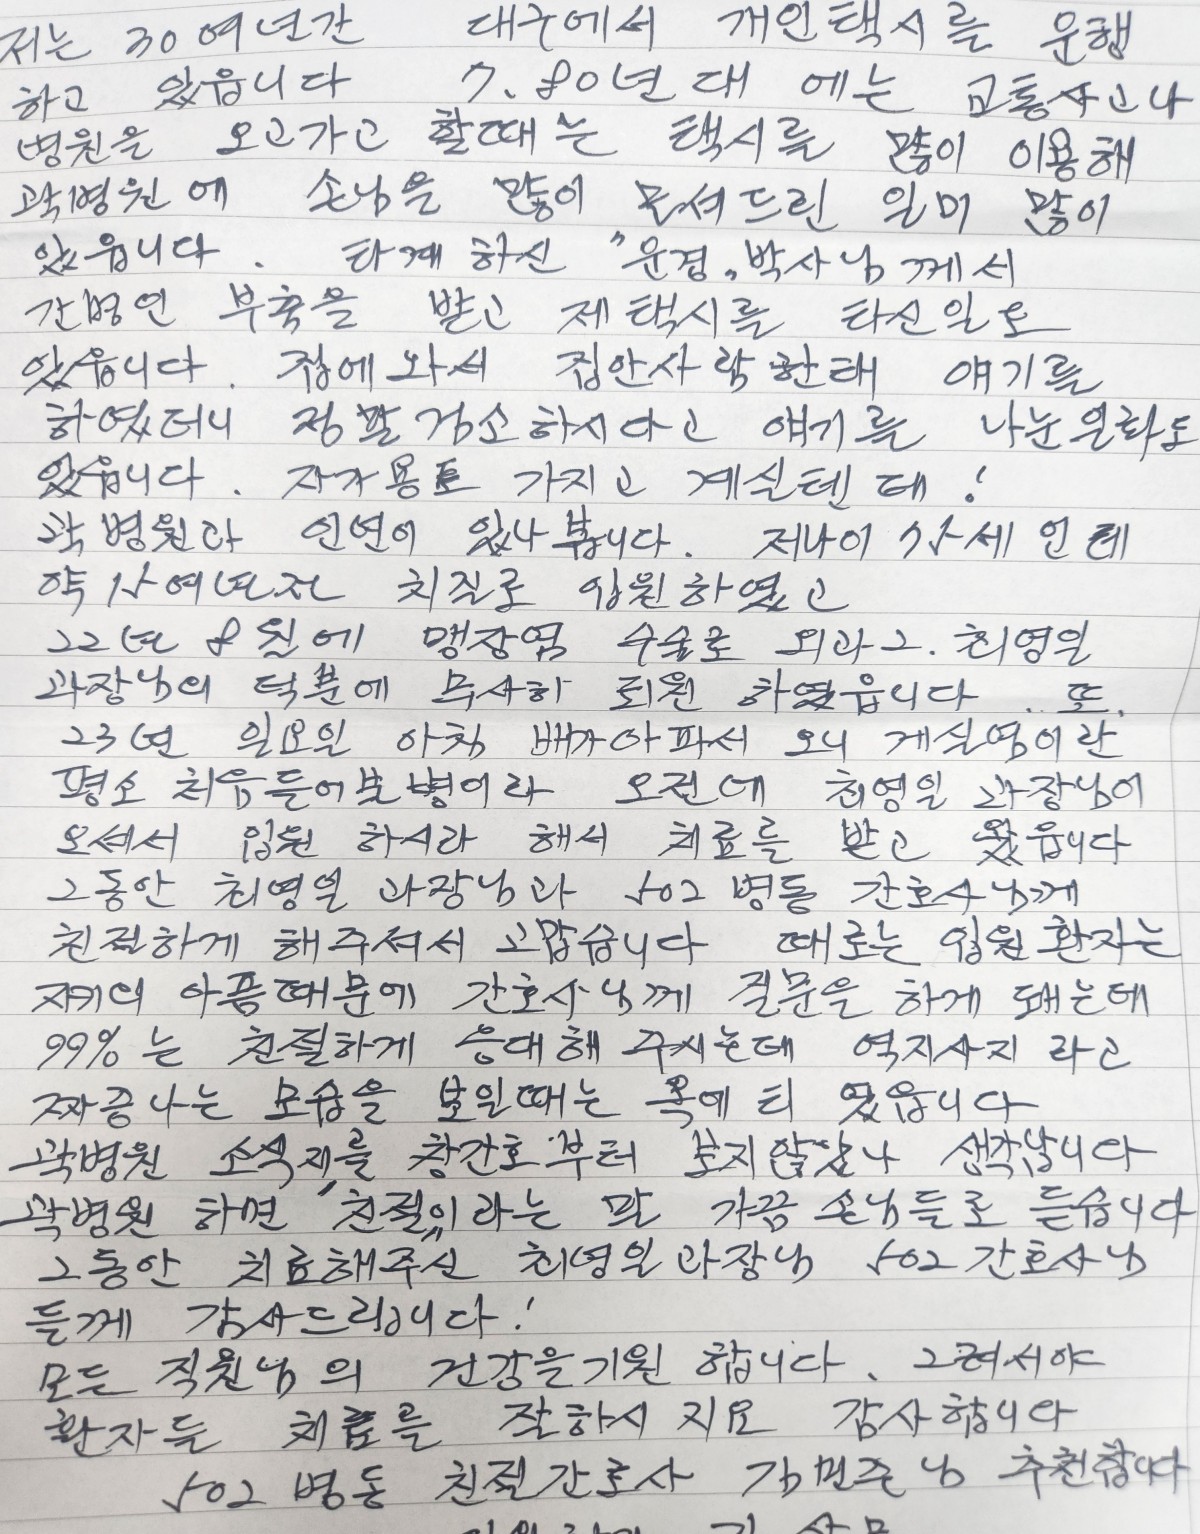 저는 30여년간 대구에서 개인택시를 운행
하고 있읍니다 7.80년대 에는 교통사고나
병원을 오고가고 할때는 택시를 많이 이용해
곽병원에 손님을 많이 모셔드린 일미 많이
있읍니다. 타계하신 "운경"박사님께서
간병인 부축을 받고 제택시를 타신일도
있읍니다. 집에와서 집안사람한태 얘기를
하였더니 정말검소하시다고 얘기를 나눈일화도
있읍니다. 자가용도 가지고 계실텐데!
곽병원과 인연이 있나봅니다. 저나이 75세인데
약 15여년전 치질로 입원하였고
22년 8월에 맹장염 수술로 외과2. 최영일
과장님의 덕분에 무사히 퇴원 하였읍니다. 또.
23년 일요일 아침 배가아파서 오니 게실염이란
평소 처음들어본병이라 오전에 최영일 과장님이
오셔서 입원 하시라 해서 치료를 받고 왔읍니다
그동안 최영일 과장님과 502병동 간호사님께
친절하게 해주셔서 고맙습니다 때로는 입원환자는
자키의 아픔때문에 간호사님께 질문을 하게 돼는데
99%는 친절하게 응대해 주시는데 역지사지 라고
짜증나는 모습을 보일때는 옥에 티 였읍니다
곽병원 소식지를 창간호부터 보지않았나 생각납니다
곽병원 하면 "친절"이라는 말 가끔 손님들로 듣습니다
그동안 치료해주신 최영일과장님 502간호사님
들께 감사드립니다!
모든 직원님의 건강을기원 합니다. 그려서야
환자들 치료를 잘하시지요 감사합니다
502병동 친절간호사 김민주님 추천합니다